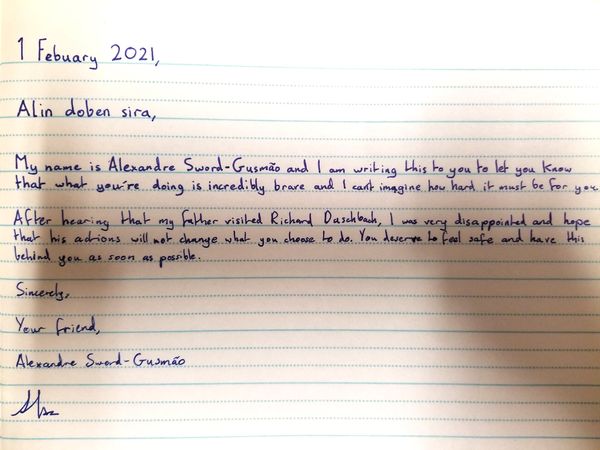 1 Febuary 2021,
Alin doben sira,
My name is Alexandre Sword-Gusmão and I am writing this to you to let you know
that what you're doing is incredibly brave and I cant imagine how hard it must be for you
After hearing that my father visited Richard Daschbach, I was very disappointed and hope
that his actions will not change what you choose to do. You deserve to feel safe and have this
behind you as soon as possible.
Sincerely,
Your friend,
Alexandre Sword-Gusmão